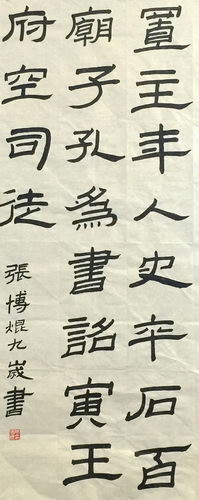 置主年人史卒石百
廟子孔為書詔寅王
府空司徒
張博焜九歲書